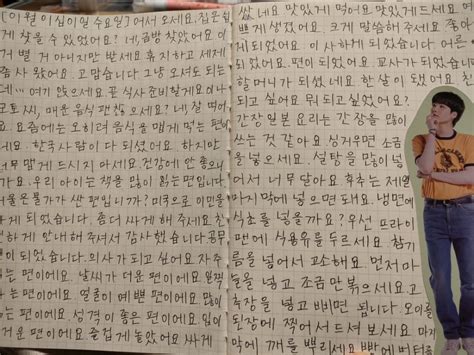 (이월 이십이일 수요일) 어서 오세요. 집은 쉽
게 찾을 수 있었어요? 네, 금방 찾았어요. 이
거 별 거 아니지만 받으세요. 휴지하고 세제
좀 사 왔어요. 고맙습니다. 그냥 오셔도 되는
데… 여기 앉으세요. 곧 식사 준비할게요.
매운 음식 괜찮으세요? 네, 잘 먹어
요. 요즘에는 오히려 음식을 맵게 먹는 편이
에요. 한국 사람이 다 되셨네요. 하지만
너무 맵게 드시지 마세요. 건강에 안 좋으니
까요. 우리 아이는 책을 많이 읽는 편입니다.
서울은 물가가 싼 편입니까? 미국으로 이민을
가게 되었습니다. 좀 더 싸게 해 주세요. 친
하게 안내해 주셔서 감사했습니다. 공무
이 되었습니다. 의사가 되고 싶어요. 자주
는 편이에요. 날씨가 더운 편이에요.
는 편이에요. 얼굴이 예쁜 편이에요. 많이
는 편이에요. 성격이 좋은 편이에요. 입이
거운 편이에요. 즐겁게 놀았어요. 싸게
샀네요. 맛있게 먹어요. 맛있게 드세요. 예
쁘게 생겼어요. 크게 말씀해 주세요. 좋아하
게 되었어요. 이사하게 되었습니다. 어른
되었어요. 편이 되었어요. 교사가 되었습니다.
할머니가 되셨네요. 한 살이 됐어요. 친
되고 싶어요. 뭐 되고 싶었어요?
간장. 일본 요리는 간장을 많이
쓰는 것 같아요. 싱거우면 소금
을 넣으세요. 설탕을 많이 넣
어서 너무 달아요. 후추는 제일
마지막에 넣으면 돼요. 냉면에
식초를 넣을까요? 우선 프라이
팬에 식용유를 두르세요. 참기
름을 넣어서 고소해요. 먼저 마
늘을 넣고 조금만 볶으세요.
고추장을 넣고 비비면 됩니다. 오이를
된장에 찍어서 드셔 보세요. 마지
막에 깨를 뿌리세요. 빵에 버터를